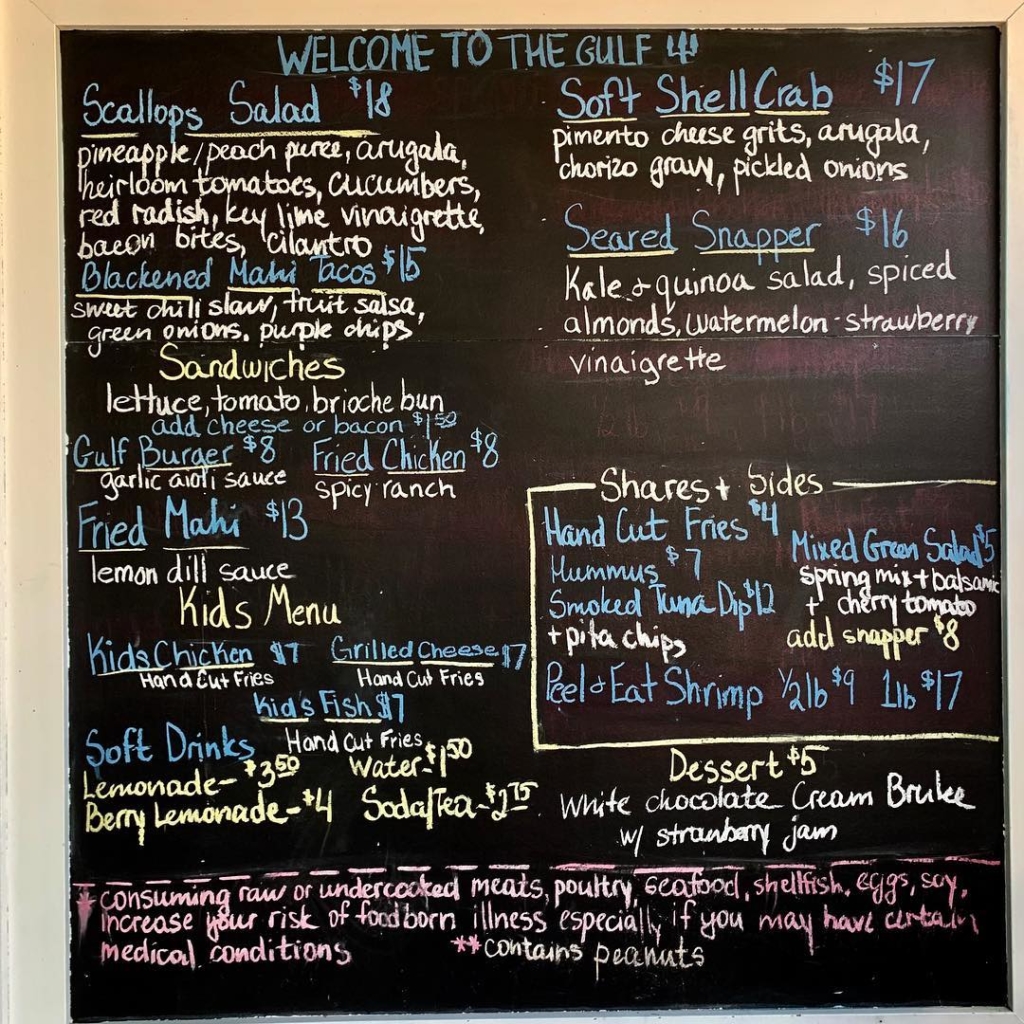 WELCOME TO THE GULF
Scallops Salad $18
pineapple/peach puree, arugala,
heirloom tomatoes, cucumbers,
red radish, key lime vinaigrette,
bacon bites, cilantro
Blackened Mahi Tacos $15
sweet chili slaw, fruit salsa,
green onions, purple chips
Sandwiches
lettuce, tomato, brioche bun
add cheese or bacon $1.50
Gulf Burger $8 Fried Chicken $8
garlic aioli sauce spicy ranch
Fried Mahi $13
lemon dill sauce
Kids Menu
Kids Chicken $7 Grilled Cheese $7
Hand Cut Fries Hand Cut Fries
Kid's Fish $7
Hand Cut Fries
Soft Drinks
Lemonade- $3.50 Water- $1.50
Berry Lemonade- $4 Soda/Tea- $2.75
Soft Shell Crab $17
pimento cheese grits, arugala,
chorizo gravy, pickled onions
Seared Snapper $16
Kale & quinoa salad, spiced
almonds, watermelon-strawberry
vinaigrette
Shares + Sides
Hand Cut Fries $4
Hummus $7
Smoked Tuna Dip $12
+ pita chips
Mixed Green Salad $5
spring mix + balsamic
+ cherry tomato
add snapper $8
Peel & Eat Shrimp 1/2lb $9 1lb $17
Dessert $5
White chocolate Cream Brulee
w/ strawberry jam
* consuming raw or undercooked meats, poultry, seafood, shellfish, eggs, soy,
increase your risk of foodborn illness especially if you may have certain
medical conditions **contains peanuts